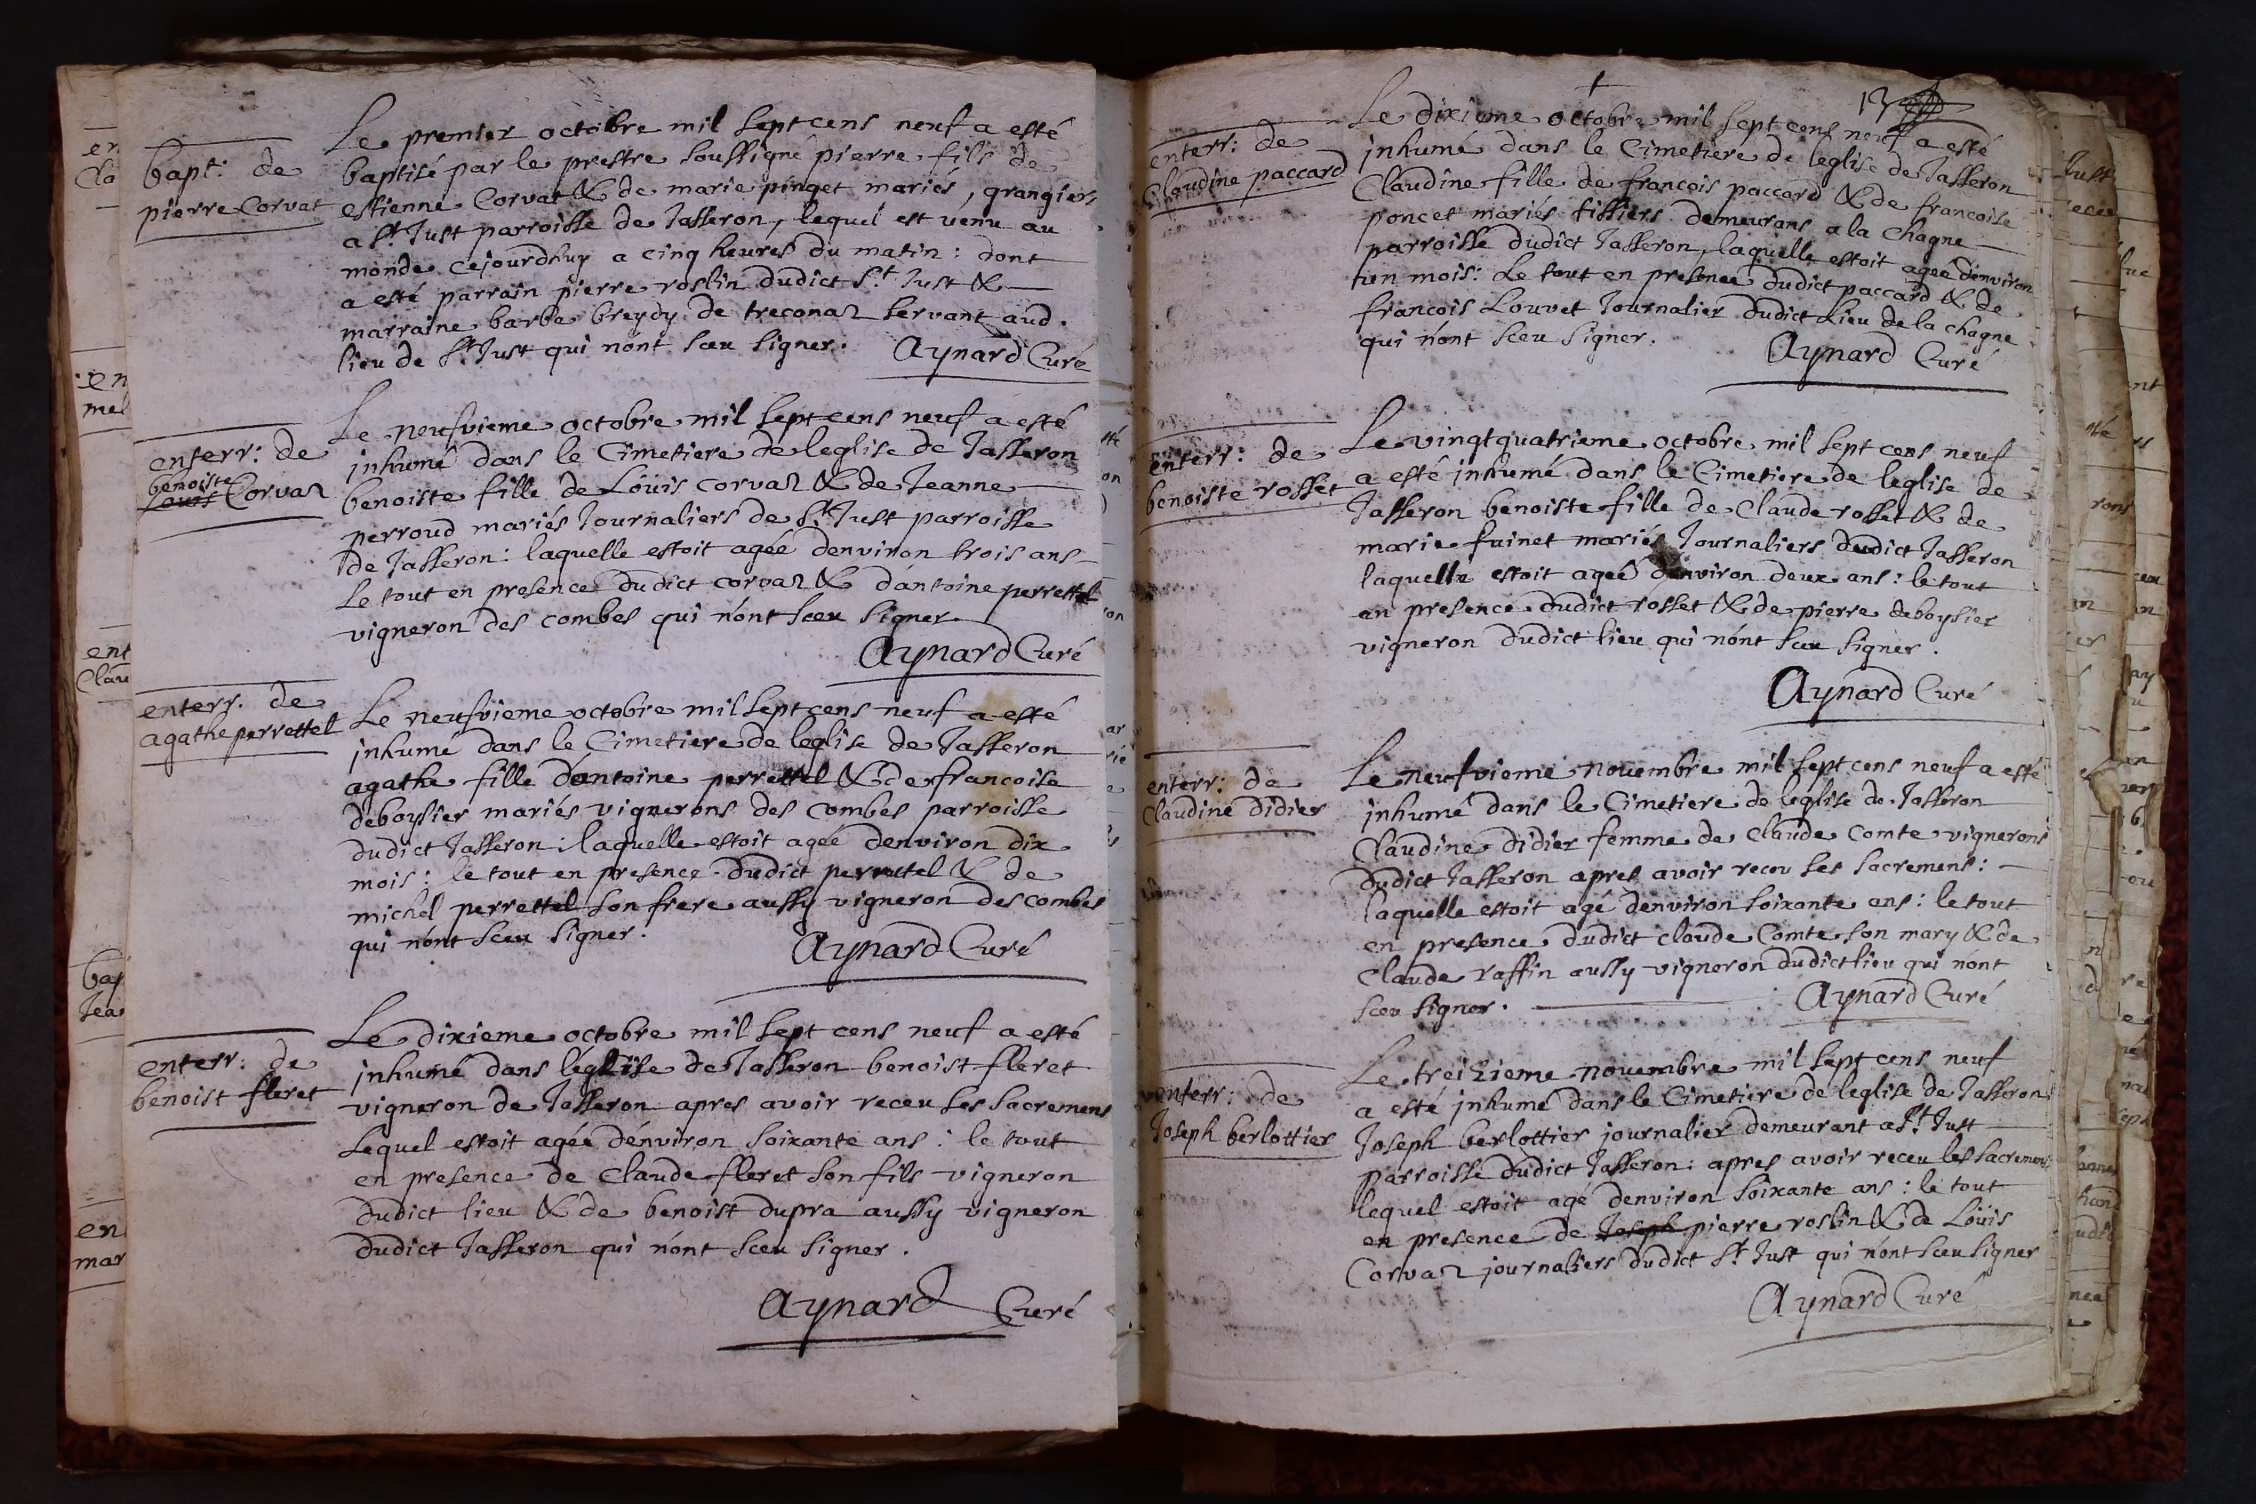 bapt: de
pierre Corvat
Le premier octobre mil sept cens neuf a esté
baptisé par le prestre soussigné pierre fils de
estienne Corvat & de marie pinget mariés, grangiers
a St Just parroisse de Jasseron, lequel est venu au
monde cejourdhuy a cinq heures du matin: dont
a esté parrain pierre roslin dudict St Just &
marraine barbe breydy de treconaz servant aud.
lieu de St Just qui nónt sceu signer. Aynard Curé
enterr: de
benoiste
louis Corvaz
Le neufvieme octobre mil sept cens neuf a esté
jnhumé dans le Cimetiere de leglise de Jasseron
benoiste fille de Loüis corvaz & de Jeanne
perroud mariés Journaliers de St Just parroisse
de Jasseron: laquelle estoit agée denviron trois ans
Le tout en presence dudict corvaz & dántoine perrettel
vigneron des combes qui nónt sceu signer.
Aynard Curé
enterr. de
agathe perrettel
Le neufvieme octobre mil sept cens neuf a esté
jnhumé dans le Cimetiere de leglise de Jasseron
agathe fille dántoine perrettel & de francoise
deboysier mariés vignerons des combes parroisse
dudict Jasseron: laquelle estoit agée denviron dix
mois: le tout en presence dudict perrettel & de
michel perrettel son frere aussy vigneron des combes
qui nónt sceu signer. Aynard Curé
enterr: de
benoist fleret
Le dixieme octobre mil sept cens neuf a esté
jnhumé dans léglise de Jasseron benoist fleret
vigneron de Jasseron apres avoir receu ses sacremens
Lequel estoit agée dénviron soixante ans: le tout
en presence de Claude fleret son fils vigneron
dudict lieu & de benoist dupra aussy vigneron
dudict Jasseron qui nónt sceu signer.
Aynard Curé
13
enterr: de
Claudine paccard
Le dixieme octobre mil sept cens neuf a esté
jnhumé dans le Cimetiere de leglise de Jasseron
Claudine fille de francois paccard & de francoise
poncet mariés tissiers demeurans a la chagne
parroisse dudict Jasseron, laquelle estoit agée dénviron
un mois: Le tout en presence dudict paccard & de
francois Louvet Journalier dudict Lieu de la chagne
qui nónt sceu signer. Aynard Curé
enterr: de
benoiste rosset
Le vingtquatrieme octobre mil sept cens neuf
a esté jnhumé dans le Cimetiere de leglise de
Jasseron benoiste fille de Claude rosset & de
marie fuinet mariés Journaliers dudict Jasseron
laquelle estoit ageé denviron deux ans: le tout
en presence dudict rosset & de pierre deboysier
vigneron dudict lieu qui nónt sceu signer.
Aynard Curé
enterr: de
Claudine didier
Le neufvieme novembre mil sept cens neuf a esté
jnhumé dans le Cimetiere de leglise de Jasseron
Claudine didier femme de Claude Comte vignerons
dudict Jasseron apres avoir receu ses sacremens:
laquelle estoit agé denviron soixante ans: le tout
en presence dudict claude Comte son mary & de
Claude raffin aussy vigneron dudict lieu qui nont
sceu signer. Aynard Curé
enterr: de
Joseph berlottier
Le treizieme novembre mil sept cens neuf
a esté jnhumé dans le Cimetiere de leglise de Jasseron
Joseph berlottier journalier demeurant a St Just
parroisse dudict Jasseron: apres avoir receu les sacremens
lequel estoit agé denviron soixante ans: le tout
en presence de Joseph pierre roslin & de Loüis
Corvaz journaliers dudict St Just qui nónt sceu signer
Aynard Curé